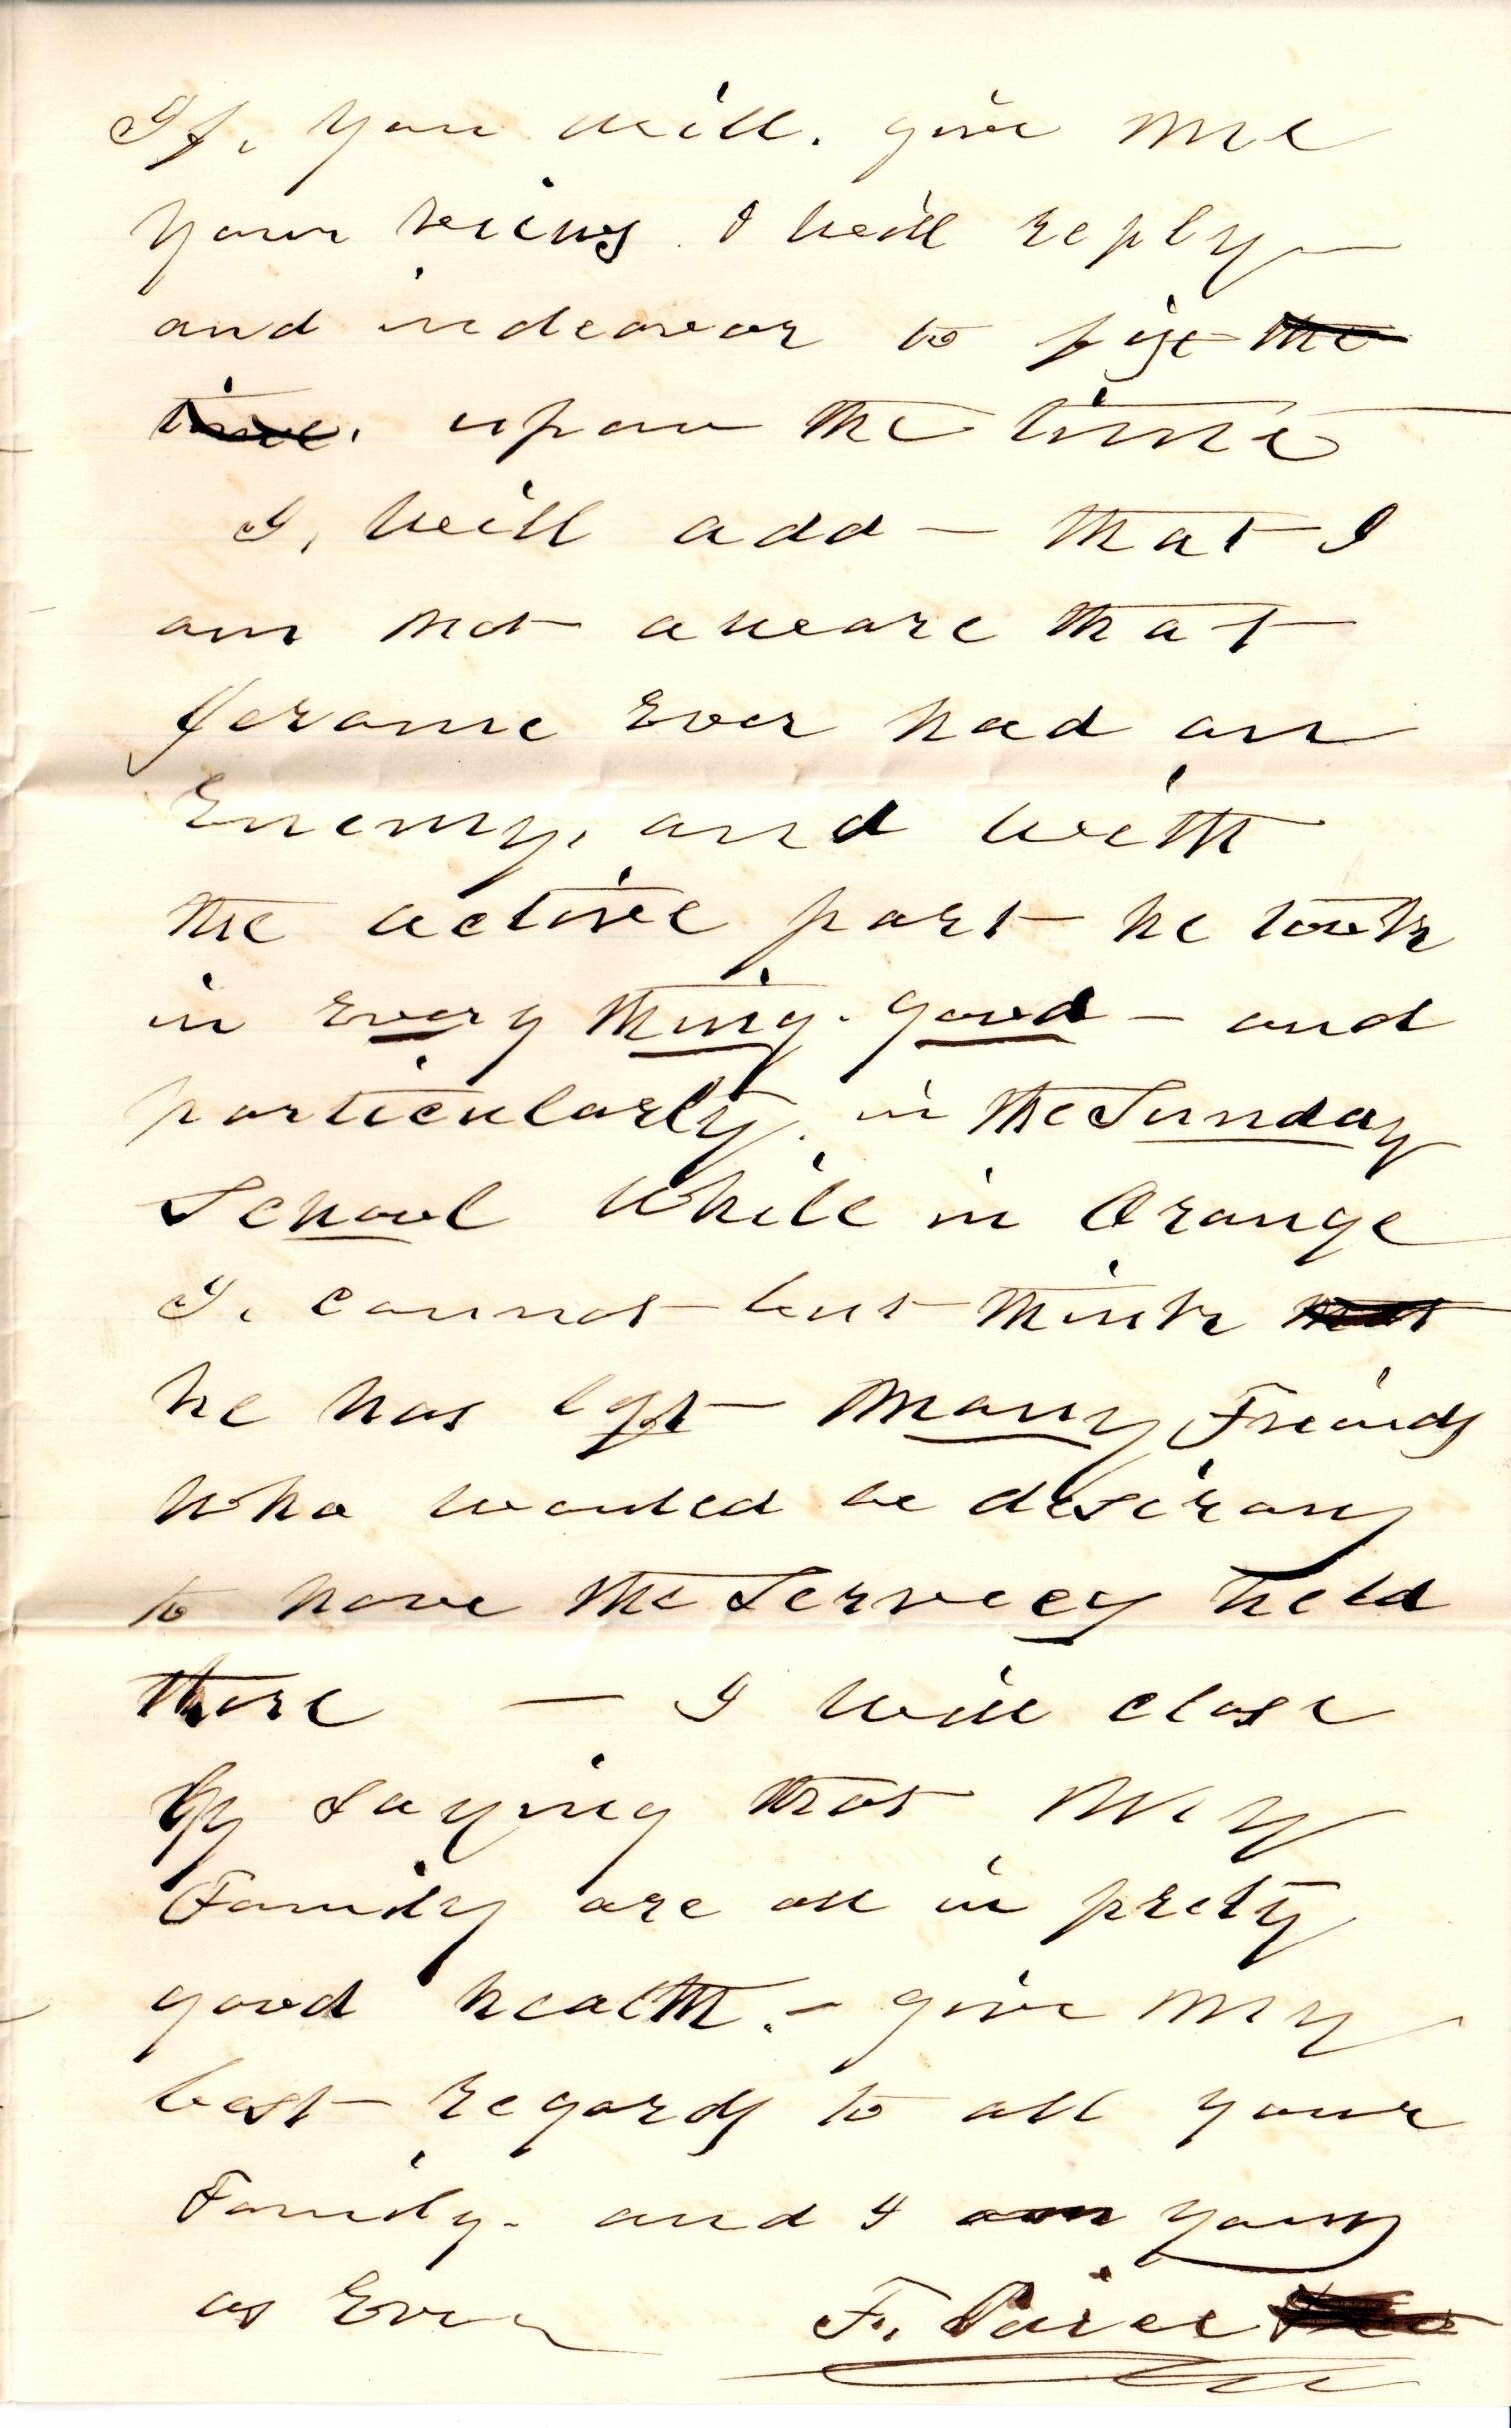 If, you will. give me
your views. I will reply
and indeavor to fix the
time. upon the time
I, will add — that I
am not aweare that
Jerome Ever had an
Enemy, and with
the active part he took
in Every thing. good — and
particularly, in the Sunday
School While in Orange
I. cannot but think
he has left many Friends
who would be desirous
to have the Servces held
there — I will close
By saying that My
Family are all in prety
good health. — give my
best regards to all your
Family. and I am yours
as Ever F. Pairce